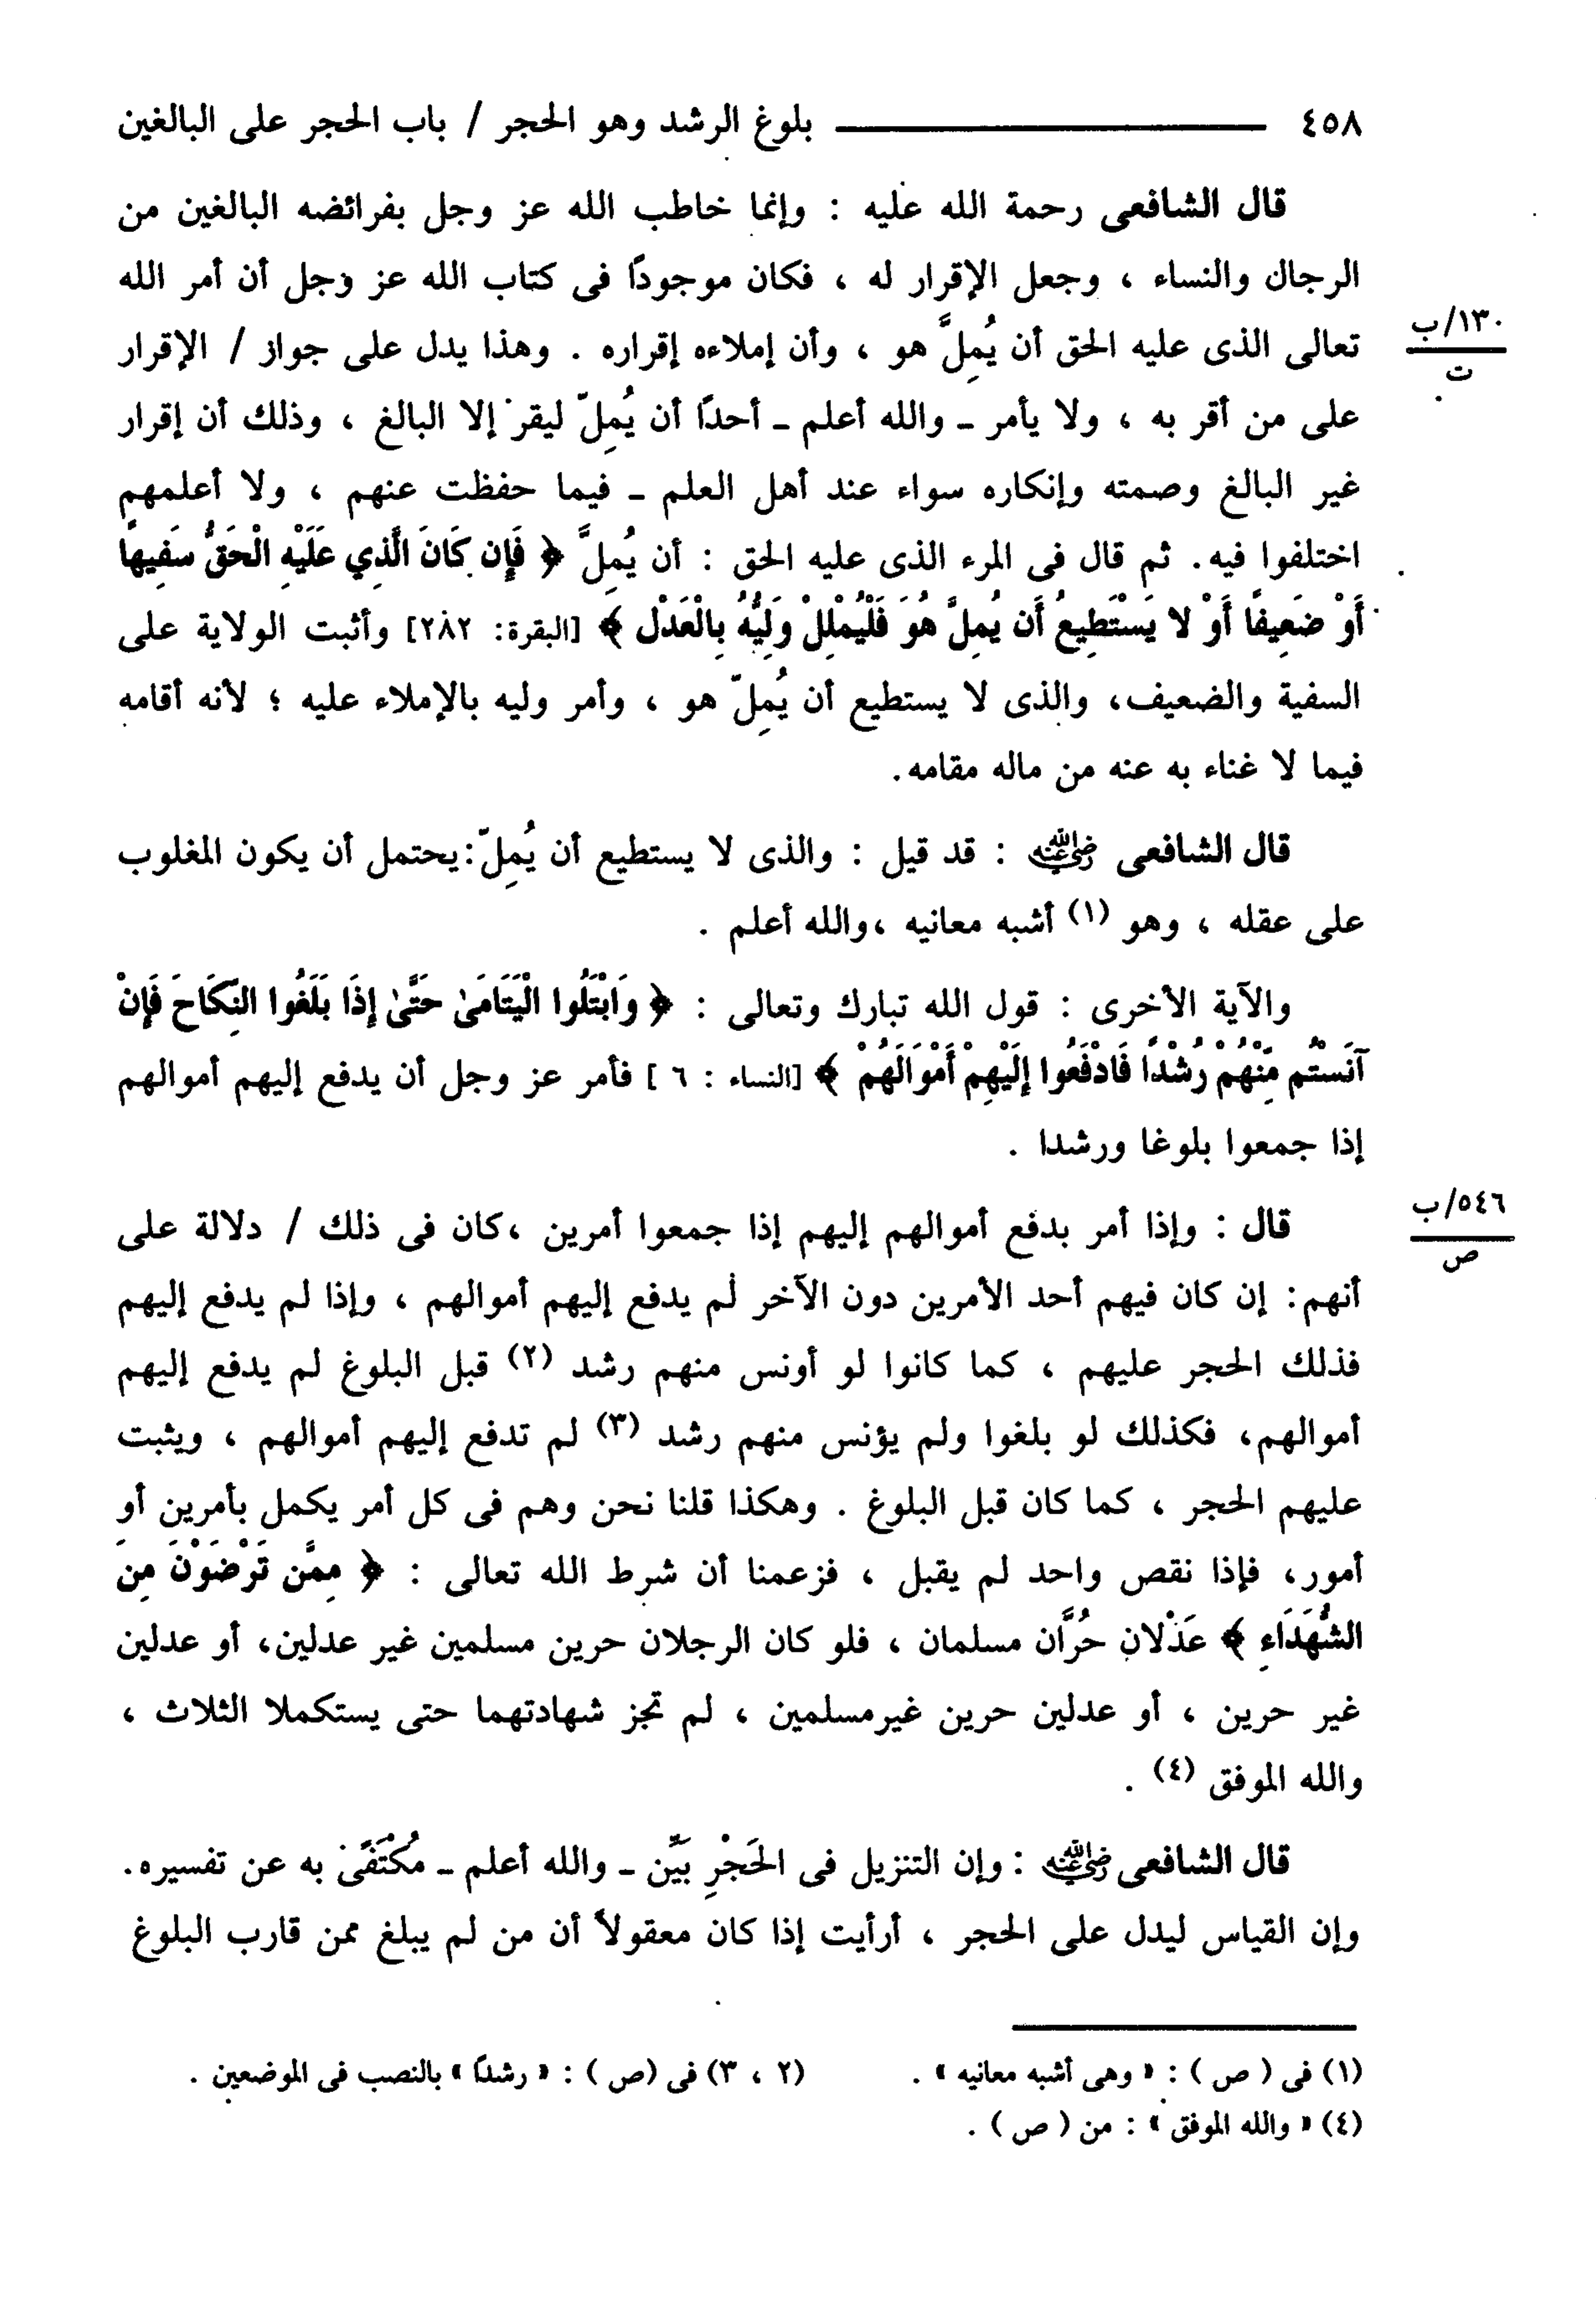 ٤٥٨ بلوغ الرشد وهو الحجر / باب الحجر على البالغين
قال الشافعى رحمة الله عليه : وإنما خاطب الله عز وجل بفرائضه البالغين من
الرجال والنساء ، وجعل الإقرار له ، فكان موجودًا فى كتاب الله عز وجل أن أمر الله
تعالى الذى عليه الحق أن يُمِلَّ هو ، وأن إملاءه إقراره . وهذا يدل على جواز / الإقرار
١٣٠/ب
ت
على من أقر به ، ولا يأمر - والله أعلم - أحدًا أن يُمِلّ ليقر إلا البالغ ، وذلك أن إقرار
غير البالغ وصمته وإنكاره سواء عند أهل العلم - فيما حفظت عنهم ، ولا أعلمهم
اختلفوا فيه. ثم قال فى المرء الذى عليه الحق : أن يُمِلَّ ﴿ فَإِن كَانَ الَّذِي عَلَيْهِ الْحَقُّ سَفِيهًا
أَوْ ضَعِيفًا أَوْ لا يَسْتَطِيعُ أَن يُمِلَّ هُوَ فَلْيُمْلِلْ وَلِيُّهُ بِالْعَدْلِ ﴾ [البقرة: ٢٨٢] وأثبت الولاية على
السفية والضعيف، والذى لا يستطيع أن يُمِلّ هو ، وأمر وليه بالإملاء عليه ؛ لأنه أقامه
فيما لا غناء به عنه من ماله مقامه.
قال الشافعى رضي الله عنه : قد قيل : والذى لا يستطيع أن يُمِلّ:يحتمل أن يكون المغلوب
على عقله ، وهو (١) أشبه معانيه ،والله أعلم .
والآية الأخرى : قول الله تبارك وتعالى : ﴿ وَابْتَلُوا الْيَتَامَىٰ حَتَّىٰ إِذَا بَلَغُوا النِّكَاحَ فَإِنْ
آنَسْتُم مِّنْهُمْ رُشْدًا فَادْفَعُوا إِلَيْهِمْ أَمْوَالَهُمْ ﴾ [النساء : ٦ ] فأمر عز وجل أن يدفع إليهم أموالهم
إذا جمعوا بلوغا ورشدا .
قال : وإذا أمر بدفع أموالهم إليهم إذا جمعوا أمرين ،كان فى ذلك / دلالة على
٥٤٦/ب
ص
أنهم: إن كان فيهم أحد الأمرين دون الآخر لم يدفع إليهم أموالهم ، وإذا لم يدفع إليهم
فذلك الحجر عليهم ، كما كانوا لو أونس منهم رشد (٢) قبل البلوغ لم يدفع إليهم
أموالهم، فكذلك لو بلغوا ولم يؤنس منهم رشد (٣) لم تدفع إليهم أموالهم ، ويثبت
عليهم الحجر ، كما كان قبل البلوغ . وهكذا قلنا نحن وهم فى كل أمر يكمل بأمرين أو
أمور، فإذا نقص واحد لم يقبل ، فزعمنا أن شرط الله تعالى : ﴿ مِمَّن تَرْضَوْنَ مِنَ
الشُّهَدَاءِ ﴾ عَدْلانِ حُرَّان مسلمان ، فلو كان الرجلان حرين مسلمين غير عدلين، أو عدلين
غير حرين ، أو عدلين حرين غيرمسلمين ، لم تجز شهادتهما حتى يستكملا الثلاث ،
والله الموفق (٤) .
قال الشافعى رضي الله عنه : وإن التنزيل فى الحَجْرِ بَيِّن - والله أعلم - مُكْتَفًى به عن تفسيره.
وإن القياس ليدل على الحجر ، أرأيت إذا كان معقولاً أن من لم يبلغ ممن قارب البلوغ
(١) فى ( ص ) : « وهى أشبه معانيه » . (٢ ، ٣) فى (ص ) : « رشدًا » بالنصب فى الموضعين .
(٤) « والله الموفق » : من ( ص ) .